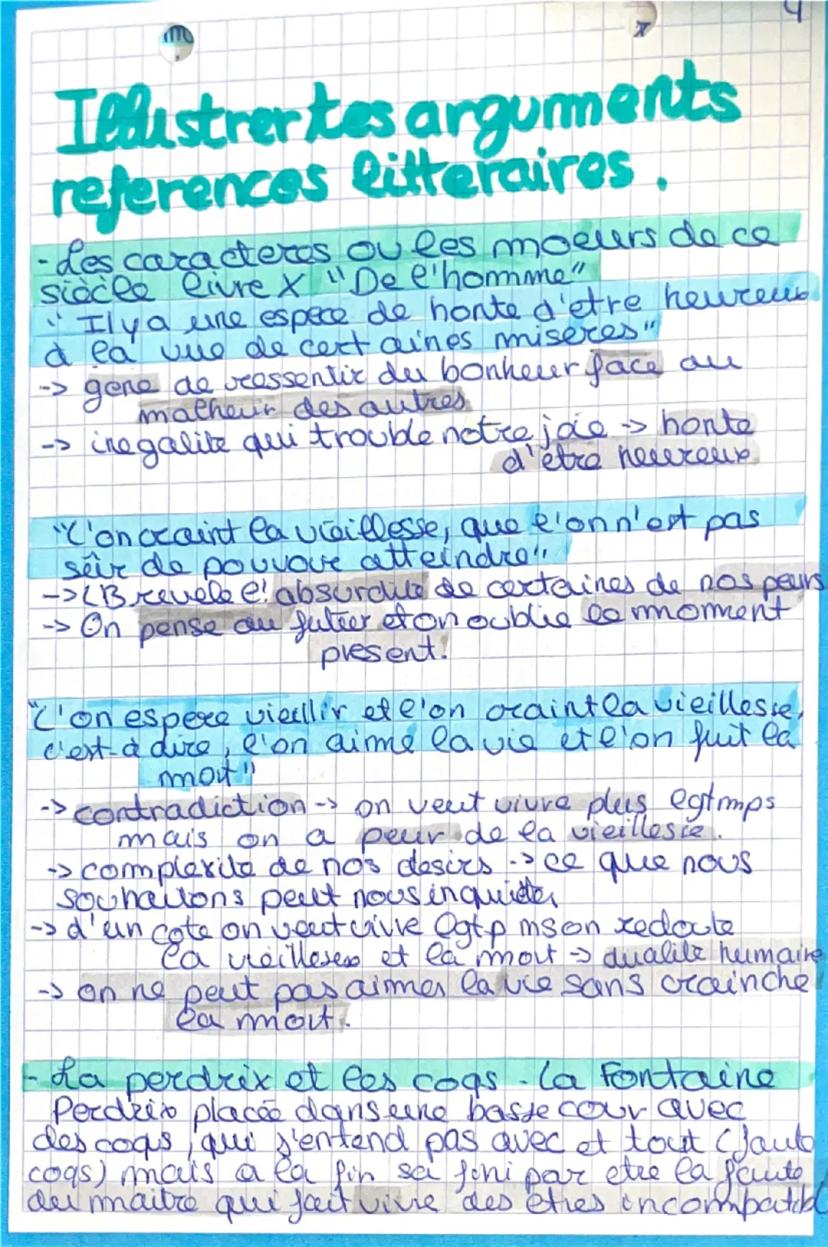 4
Illustrer tes arguments
references litteraires.
- Les caracteres ou les moeurs de ce
siècle livre X "De l'homme"
"Il y a une espece de honte d'etre heureux
à la vue de certaines miseres"
-> gene de ressentir du bonheur face au
malheur des autres
-> inegalite qui trouble notre joie -> honte
d'être heureux
"L'on craint la vieillesse, que l'on n'est pas
sûr de pouvoir atteindre"
-> LB revele l'absurdite de certaines de nos peurs
-> On pense au futur et on oublie le moment
present.
"L'on espere vieillir et l'on craint la vieillesse,
c'est-à dire, l'on aime la vie et l'on fuit la
mort"
-> contradiction -> on veut vivre plus lgtmps
mais on a peur de la vieillesse.
-> complexite de nos desirs -> ce que nous
souhaitons peut nous inquieter
-> d'un cote on veut vivre lgtp ms on redoute
la vieillesse et la mort -> dualite humaine
-> on ne peut pas aimer la vie sans crainche
la mort.
- La perdrix et les coqs - la Fontaine
Perdrix placée dans une basse cour avec
des coqs, qui s'entend pas avec et tout (faute
coqs) mais a la fin sa fini par etre la faute
du maitre qui fait vivre des êtres incompatibl